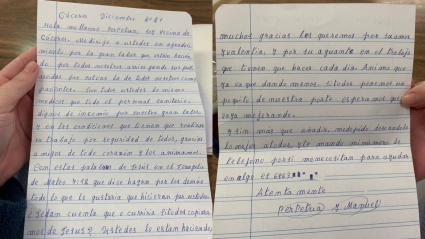 Cáceres Diciembre
Hola mellamo Perpetua, soy vecina de
Cáceres. Medirijo a ustedes en agradeci
miento por la gran labor que están hacien
do por todos nosotros arriesgando sus pro
vidas por salvar la de todos nosotros como
pacientes. Son todos ustedes de mismo
medicos que todo el personal sanitario
dignos de incomio por vuestra gran labor
y en las condiciones que tienen que realizar
su trabajo por seguridad de todos, gracias
amigos de todo corazón y los animamos.
Con estas palabras de Jesús en el
de Mateo 7:12 que dice hagan por los demás
todo lo que le gustaria que hicieran por ustedes
¿Se dan cuenta que o curriria si todos copiara
mos de Jesus? Ustedes lo estan haciendo,
muchas gracias los queremos por su amor
y valentia. Y por su aguante en el trabajo
que tienen que hacer cada dia. Animo que
ya va quedando menos. Si todos ponemos un
poquito de nuestra parte esperamos que
vaya mejorando.
Y sin mas que añadir, me despido deseandole
lo mejor a todos, y le mando mi numero de
telefono por si me necesitan para ayudar
en algo es
Atentamente
Perpetua y Manuel